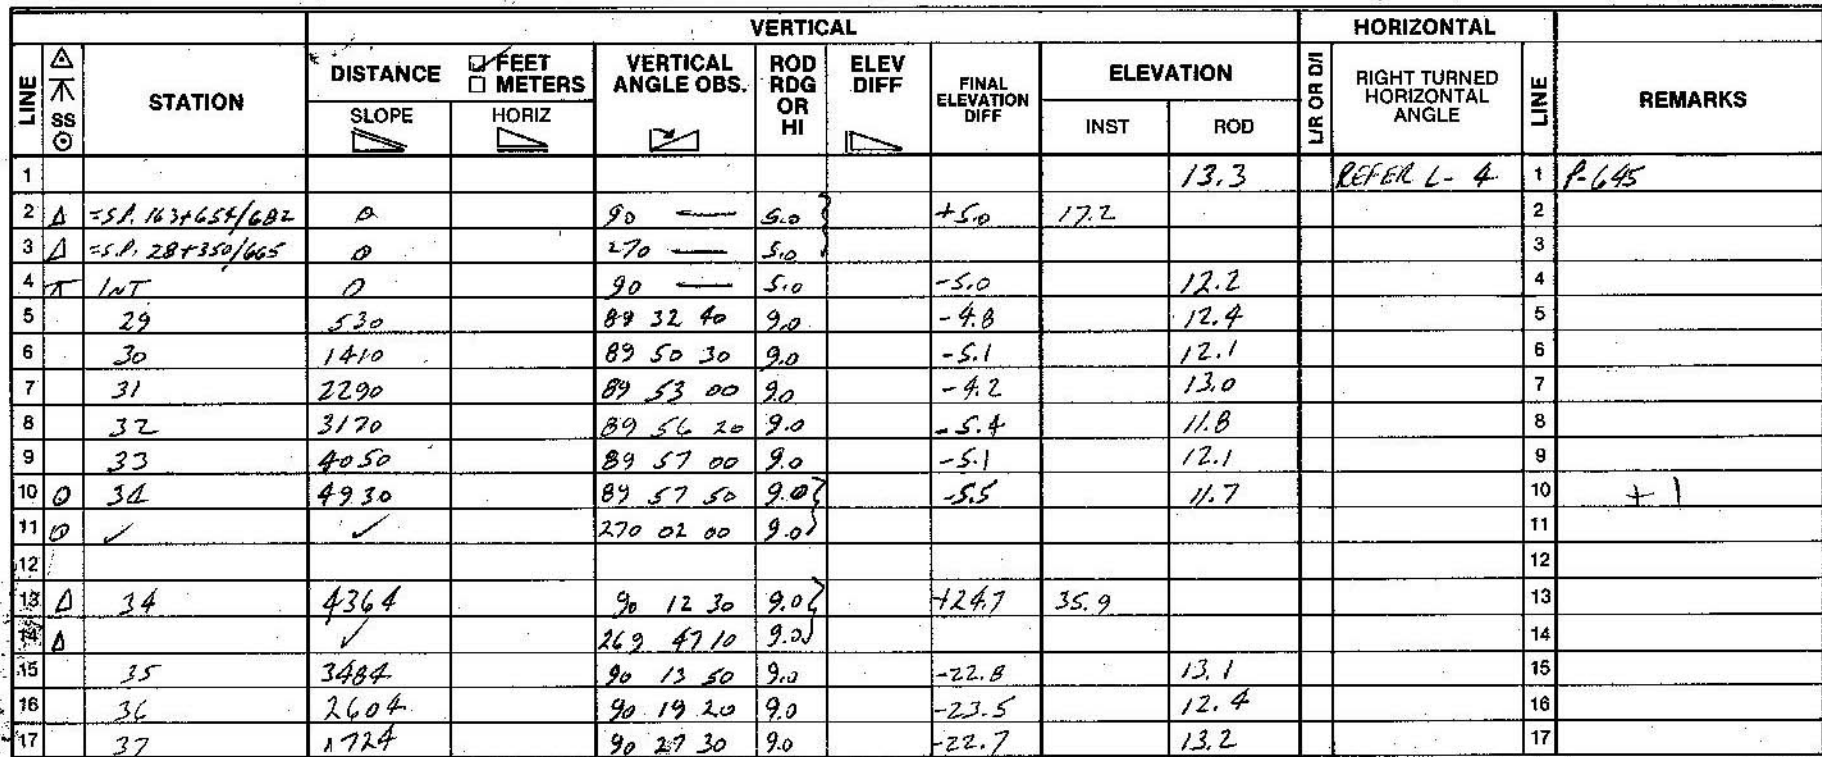 VERTICAL HORIZONTAL
LINE SS STATION DISTANCE FEET METERS VERTICAL ANGLE OBS. ROD RDG OR HI ELEV DIFF FINAL ELEVATION DIFF ELEVATION L/R OR D/I RIGHT TURNED HORIZONTAL ANGLE LINE REMARKS
SLOPE HORIZ INST ROD
1 13.3 REFER L- 4 1 P-645
2 Δ =S.P. 163+654/682 0 90 — 5.0 +5.0 17.2 2
3 Δ =S.P. 28+350/665 0 270 — 5.0 3
4 INT 0 90 — 5.0 -5.0 12.2 4
5 29 530 89 32 40 9.0 -4.8 12.4 5
6 30 1410 89 50 30 9.0 -5.1 12.1 6
7 31 2290 89 53 00 9.0 -4.2 13.0 7
8 32 3170 89 56 20 9.0 -5.4 11.8 8
9 33 4050 89 57 00 9.0 -5.1 12.1 9
10 34 4930 89 57 50 9.0 -5.5 11.7 10 +1
11 ✓ ✓ 270 02 00 9.0 11
12 12
13 Δ 34 4364 90 12 30 9.0 +24.7 35.9 13
14 Δ ✓ 269 47 10 9.0 14
15 35 3484 90 13 50 9.0 -22.8 13.1 15
16 36 2604 90 19 20 9.0 -23.5 12.4 16
17 37 1724 90 27 30 9.0 -22.7 13.2 17